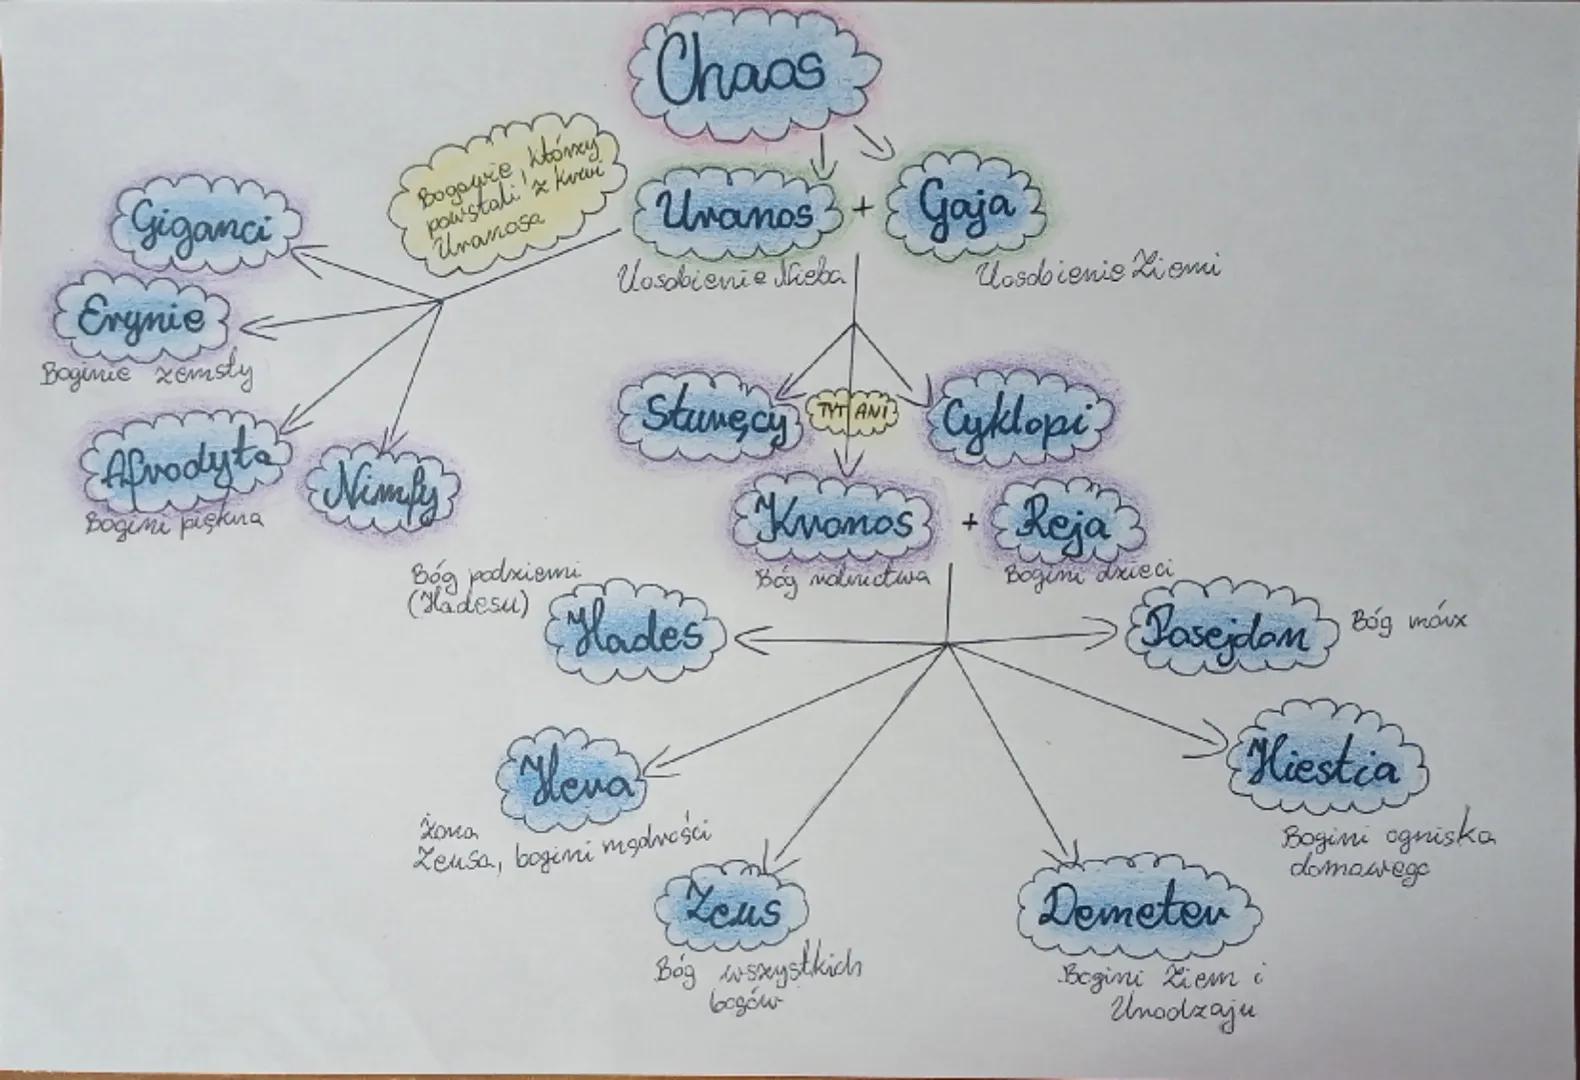 Chaos
Bogowie, którzy
powstali z krwi
Uranosa
Uranos + Gaja
Uosobienie Nieba
Uosobienie Ziemi
Giganci
Erynie
Boginie zemsty
Afrodyta
Bogini piękna
Nimfy
Sturęcy
TYTANI
Cyklopi
Kronos + Reja
Bóg rolnictwa
Bogini dzieci
Bóg podziemi
(Hadesu)
Hades
Posejdon
Bóg mórz
Hera
żona
Zeusa, bogini mądrości
Hiestia
Bogini ogniska
domowego
Zeus
Bóg wszystkich
bogów
Demeter
Bogini Ziem i
Urodzaju